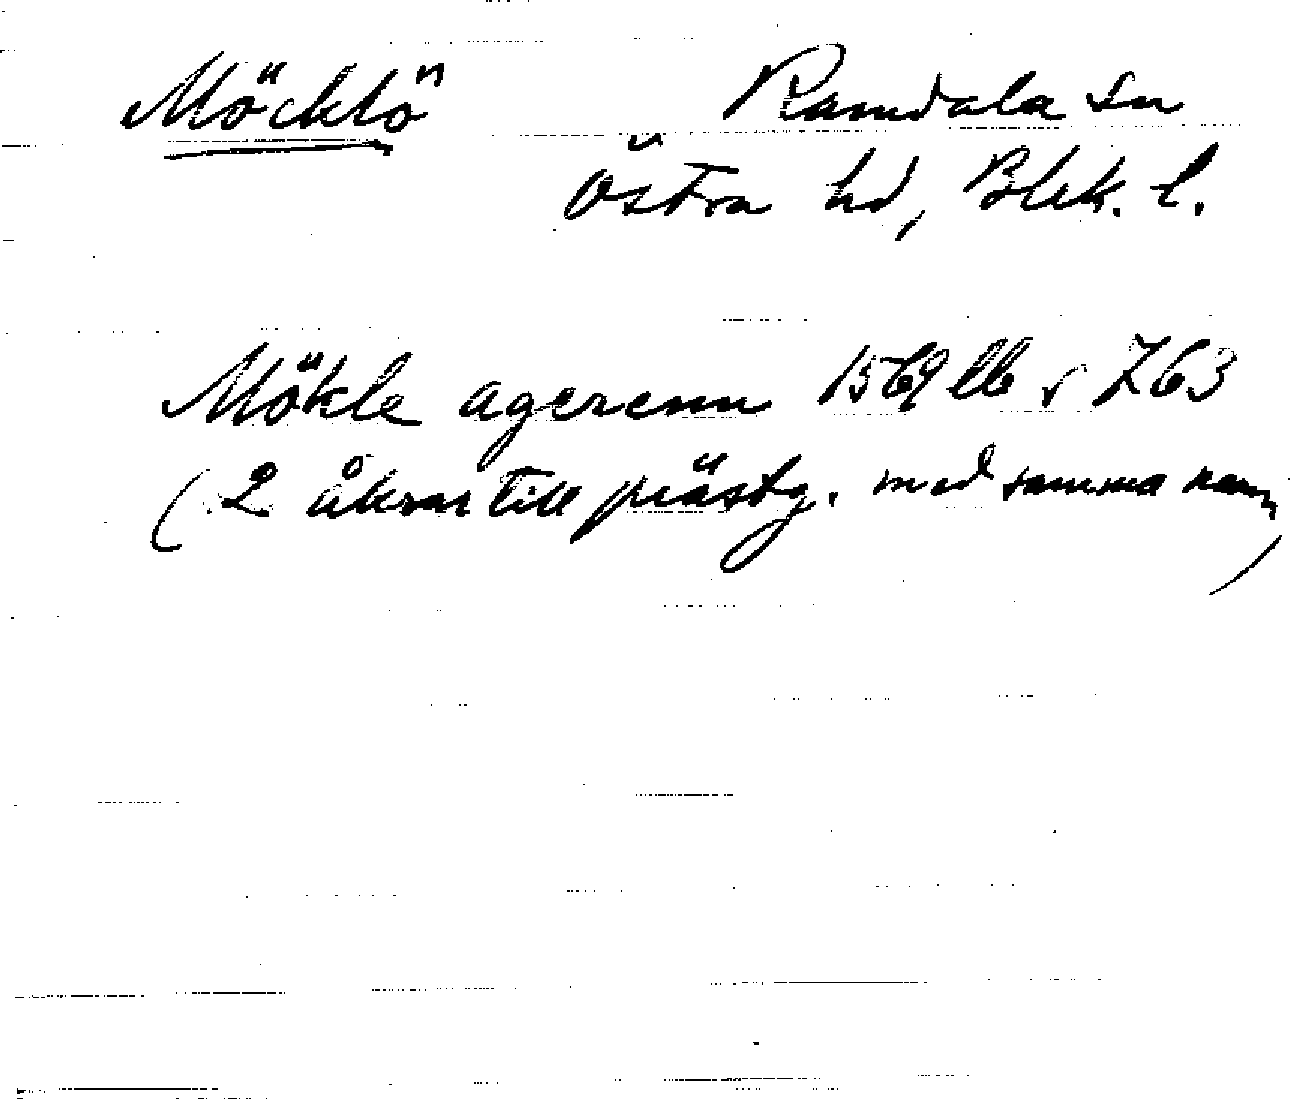 Möcklö Ramdala sn
Östra hd, Blek. l.
Mökle agerenn 1569 lb s 763
(2 åkrar till prästg. med samma namn)